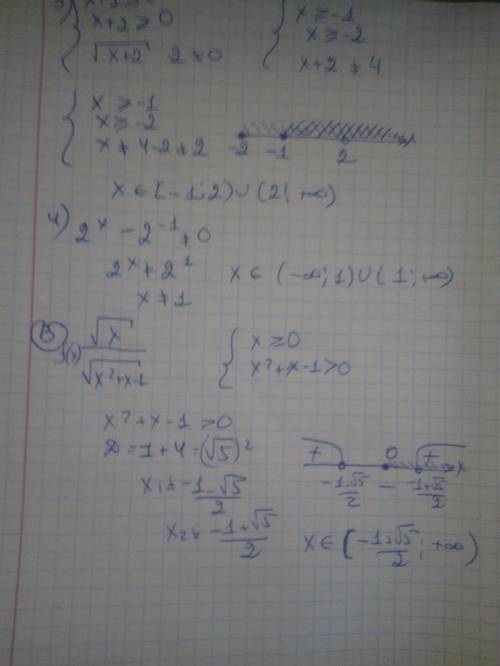 x+2 ≥ 0
x ≥ -1
√(x+2) 2 ≠ 0
x ≥ -2
x+2 ≠ 4
x ≥ -1
x ≥ -2
x ≠ 4-2 ≠ 2
-2 -1 2 x
x ∈ [-1; 2) ∪ (2; +∞)
4) 2^x - 2^-1 ≠ 0
2^x ≠ 2^1 x ∈ (-∞; 1) ∪ (1; +∞)
x ≠ 1
В f(x) √x / √(x²+x-1) { x ≥ 0
x²+x-1 > 0
x²+x-1 > 0
D = 1+4 = (√5)²
+ 0 + x
x₁ = (-1-√5)/2 (-1-√5)/2 - (-1+√5)/2
x₂ = (-1+√5)/2 x ∈ [(-1+√5)/2; +∞)